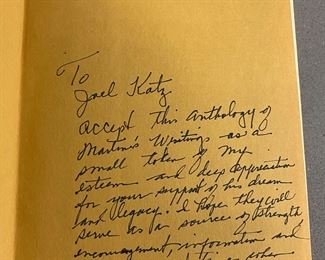 To
Joel Katz
accept this anthology of
Martin's Writings as a
small token of my
esteem and deep appreciation
for your support of his dream
and legacy. I hope they will
serve as a source of strength
encouragement, information and